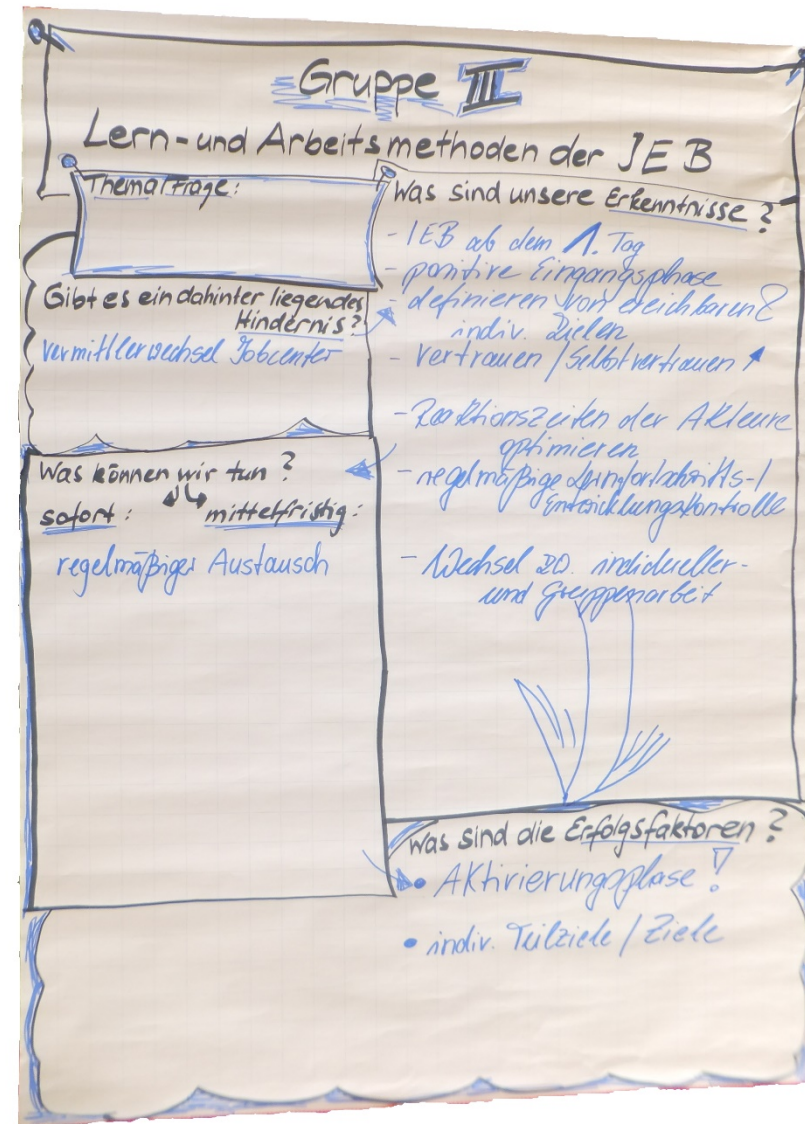 Gruppe III
Lern- und Arbeitsmethoden der IEB
Thema/Frage:
Gibt es ein dahinter liegendes
Hindernis?
Vermittlerwechsel Jobcenter
Was können wir tun?
sofort: mittelfristig:
regelmäßiger Austausch
Was sind unsere Erkenntnisse?
- IEB ab dem 1. Tag
- positive Eingangsphase
- definieren von ereichbaren &
indiv. Zielen
- Vertrauen / Selbstvertrauen
- Reaktionszeiten der Akteure
optimieren
- regelmäßige Lernfortschritts-/
Entwicklungskontrolle
- Wechsel
und Gruppenarbeit
Was sind die Erfolgsfaktoren?
• Aktivierungsphase!
• indiv. Teilziele / Ziele